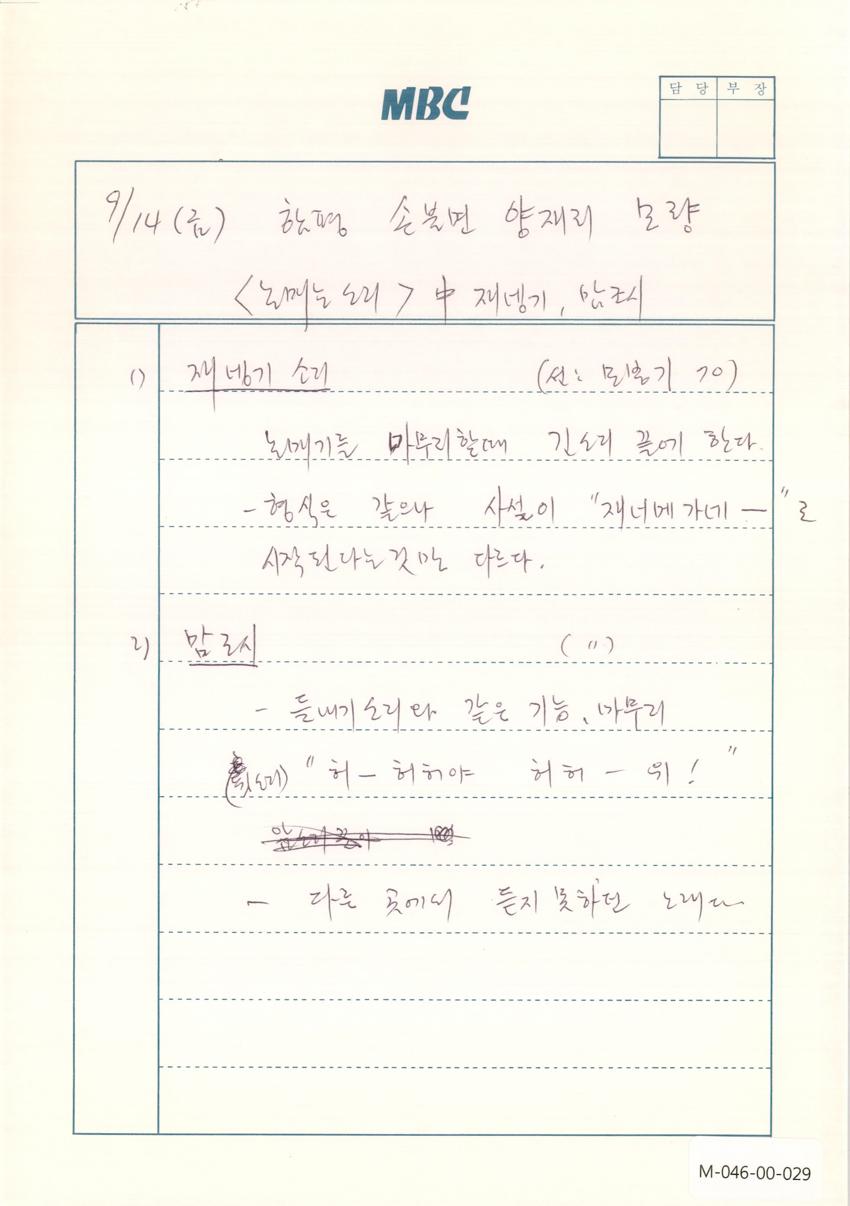 MBC
담당 부장
9/14 (금) 함평 손불면 양재리 모량
<논매는 소리> 中 재넹기, 맘로시
1) 재넹기 소리 (선: 모봉기 70)
논매기를 마무리할때 긴소리 끝에 한다.
- 형식은 같으나 사설이 "재너메 가네 —" 로
시작된다는것만 다르다.
2) 맘로시 ( " )
- 들내기소리와 같은 기능, 마무리
(뒷소리) " 허 — 허허야 허허 — 위! "
- 다른 곳에서 듣지 못하던 노래다
M-046-00-029